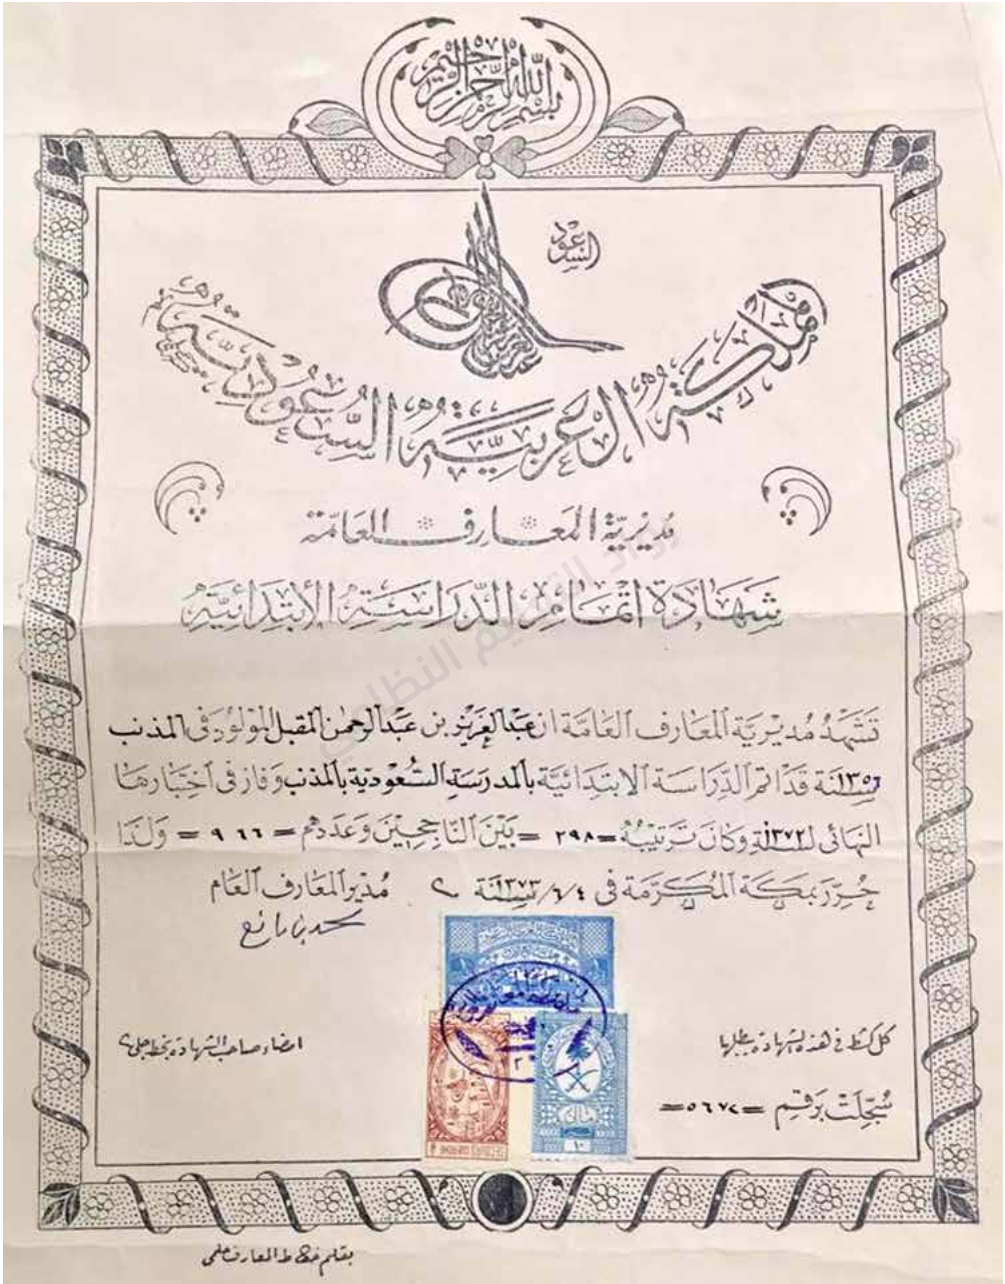 بسم الله الرحمن الرحيم
السعود
المملكة العربية السعودية
مديرية المعارف العامة
شهادة اتمام الدراسة الابتدائية
تشهد مديرية المعارف العامة ان عبدالعزيز بن عبدالرحمن المقبل المولود في المذنب
سنة ١٣٥٦ قد اتم الدراسة الابتدائية بالمدرسة السعودية بالمذنب وفاز في اختبارها
النهائي لسنة ١٣٧٢ وكان ترتيبه = ٢٩٨ = بين الناجحين وعددهم = ٩٦٦ = ولذا
حرر بمكة المكرمة في ٤/٦/سنة ١٣٧٣
مدير المعارف العام
محمد بن مانع
كل كشط في هذه الشهادة يبطلها
امضاء صاحب الشهادة بخط جلي
سجلت برقم = ٥٦٧٢ =
١٠
بقلم خطاط المعارف حلمي
رواد التعليم النظامي